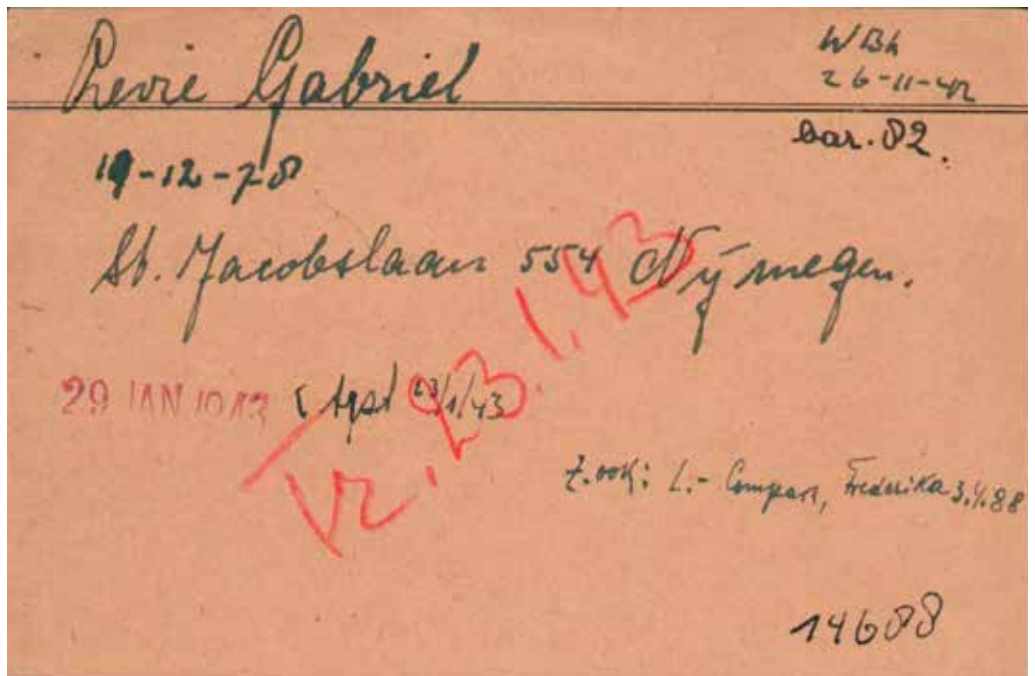 Levie Gabriel
WBk
26-11-42
bar. 82.
19-12-78
St. Jacobslaan 554 Nijmegen.
Tr. 23.1.43
29 JAN 1943 tgst 23/1/43
Z.ook: L.- Compart, Frederika 3.1.88
14688